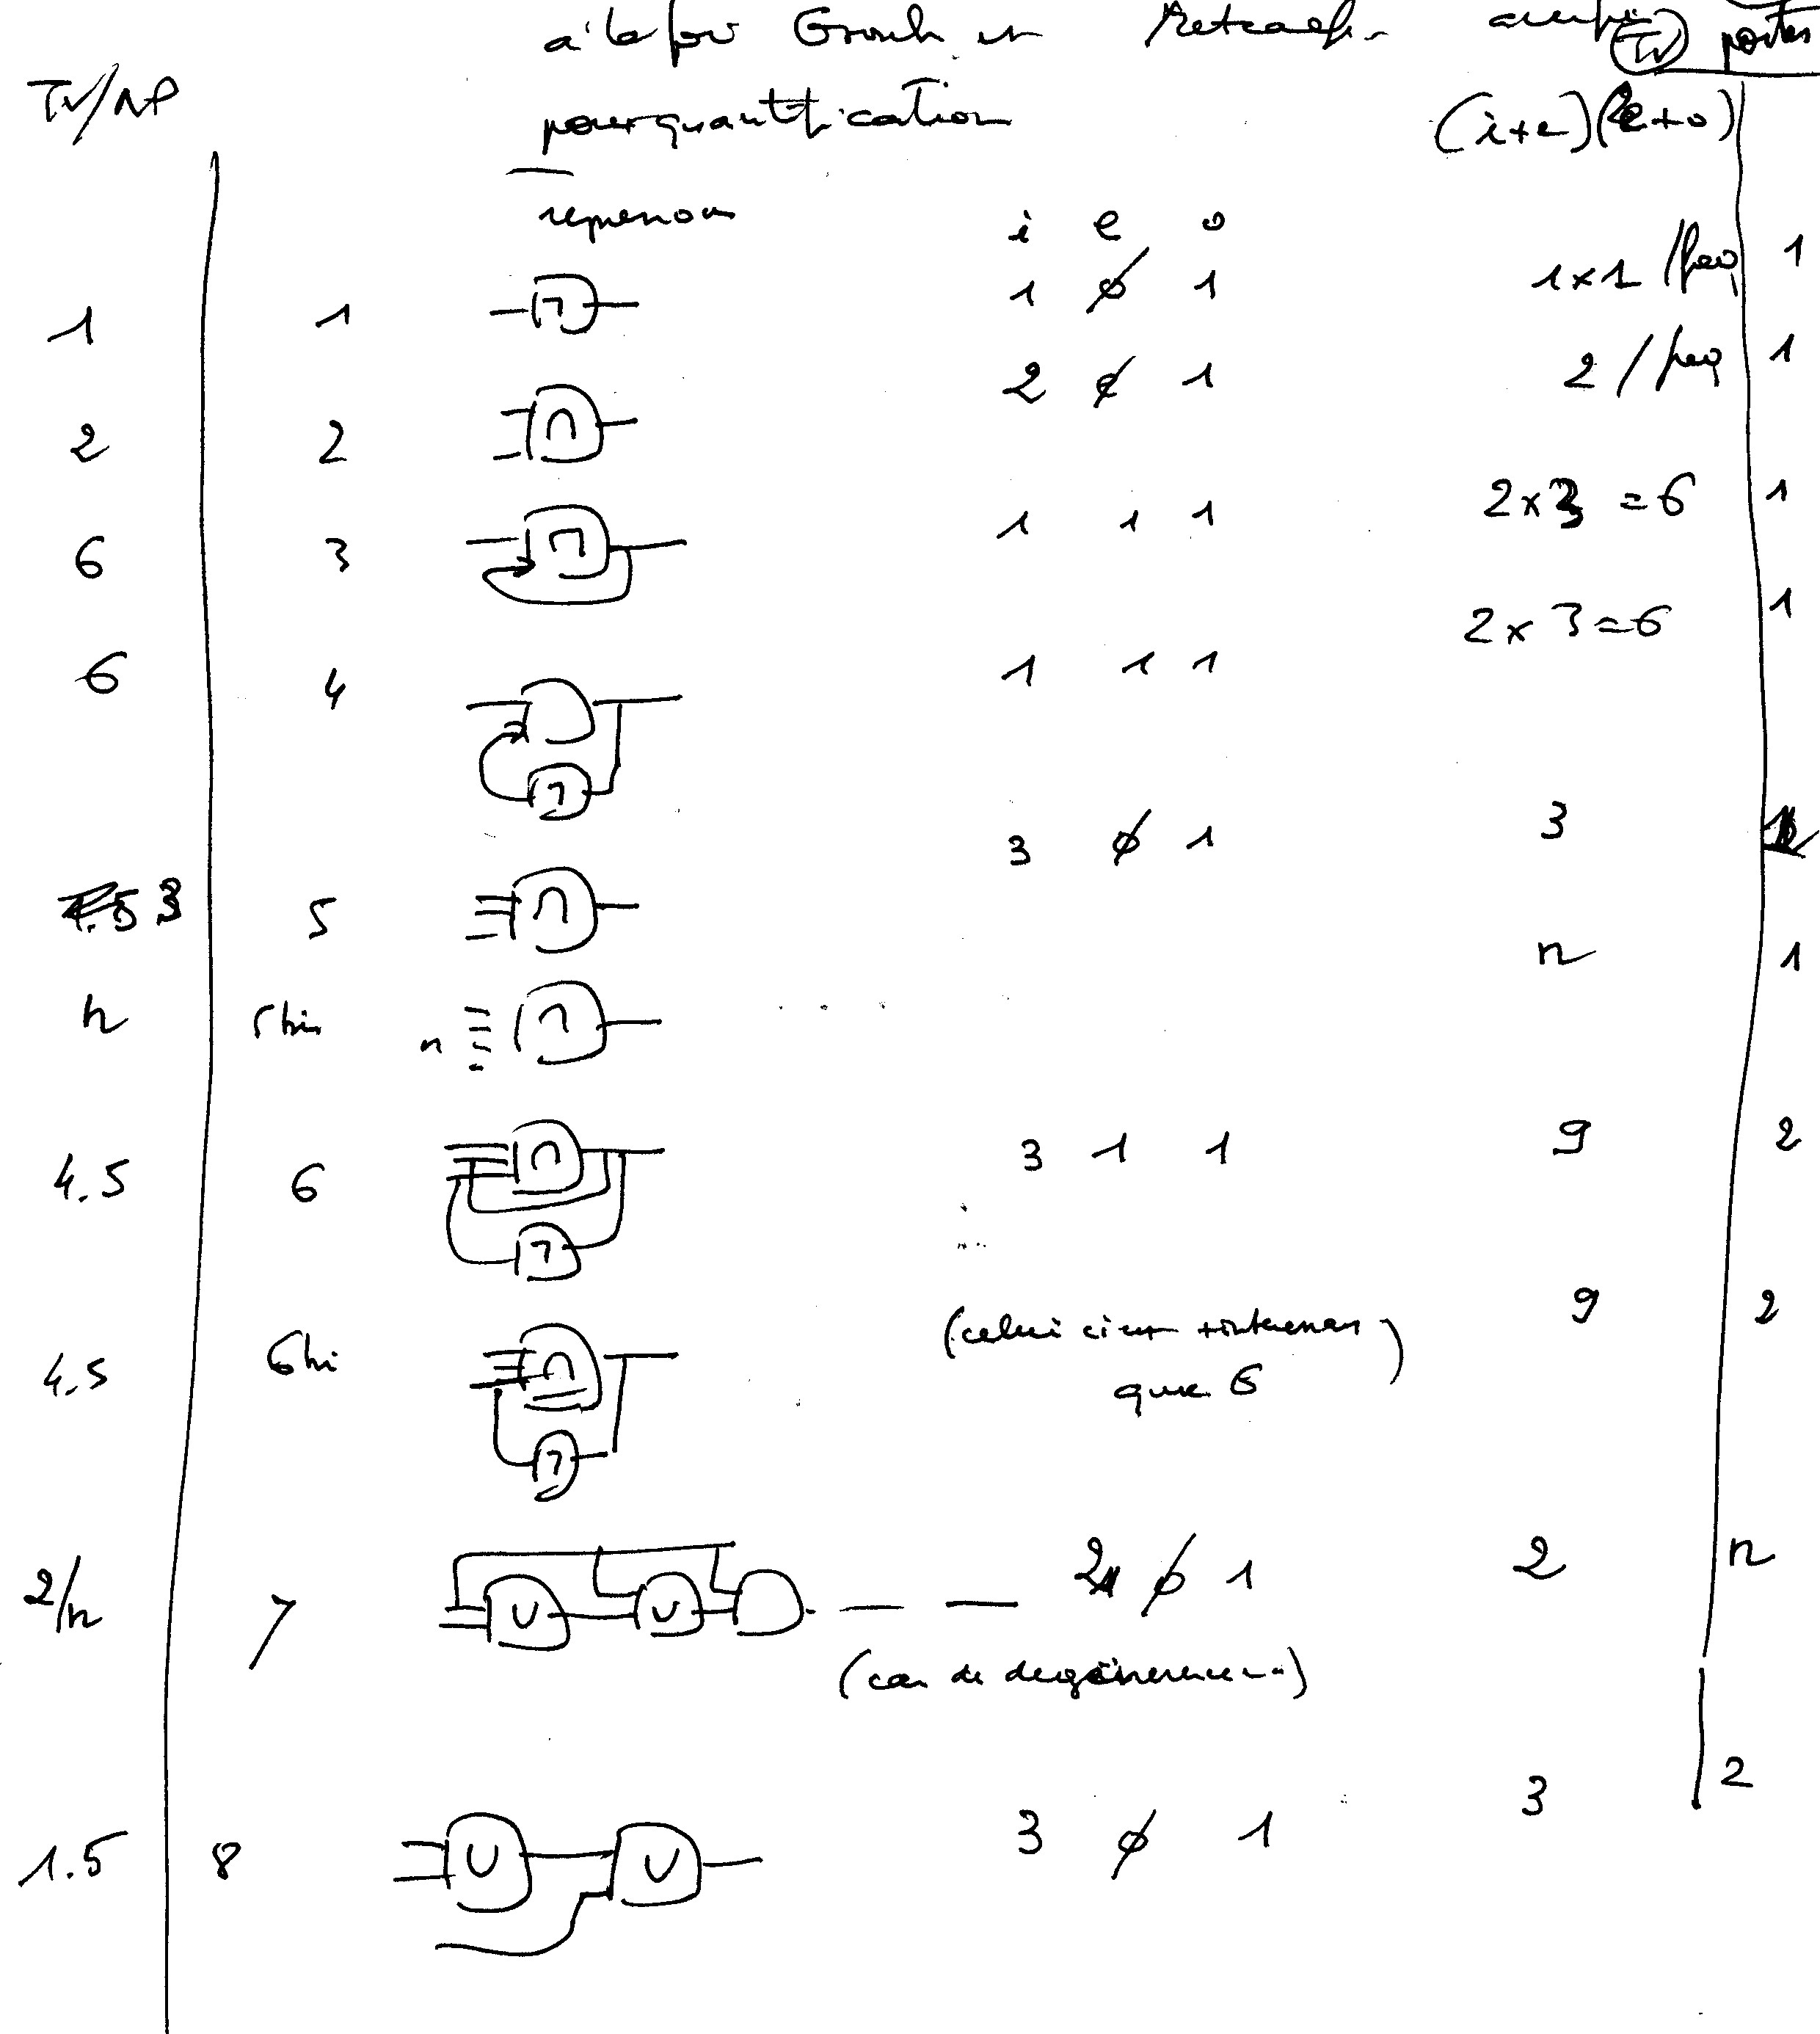 à la fois et Metcalfe TV portes
TV/NP pour quantification (i+e)(2e+o)
reprenons
i e o
1 1 ¬ 1 ø 1 1×1 / 1
2 2 ∩ 2 ø 1 2 / 1
6 3 1 1 1 2×3=6 1
6 4 ¬ 1 1 1 2×3=6 1
3 5 ∩ 3 ø 1 3 1
n 5bis n n 1
4.5 6 ∩ ¬ 3 1 1 9 2
4.5 6bis ∩ ¬ (celui ci est + intéressant que 6) 9 2
2/n 7 ∪ ∪ 2 ø 1 2 n
(cas de dégénérescence)
1.5 8 ∪ ∪ 3 ø 1 3 2